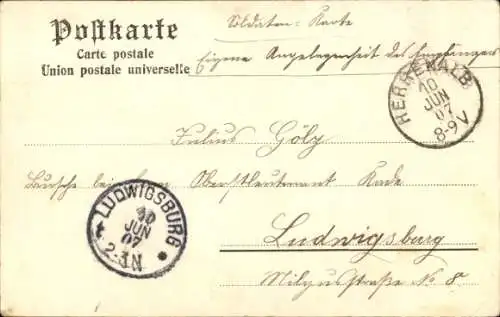 Postkarte
Carte postale
Union postale universelle
Soldaten-Karte
Eigene Angelegenheit des Empfängers
HERRENALB
10
JUN
07
8-9V
Julius Gölz
Bursche bei Herrn Oberstleutnant Kade
LUDWIGSBURG
10
JUN
07
2-3N
Ludwigsburg
Straße No 8